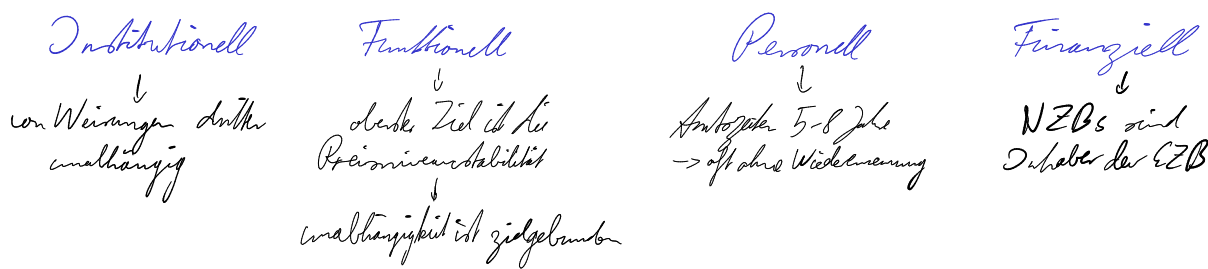 Institutionell
von Weisungen dritter
unabhängig
Funktionell
oberstes Ziel ist die
Preisniveaustabilität
unabhängigkeit ist zielgebunden
Personell
Amtszeiten 5-8 Jahre
→ oft ohne Wiederernennung
Finanziell
NZBs sind
Inhaber der EZB